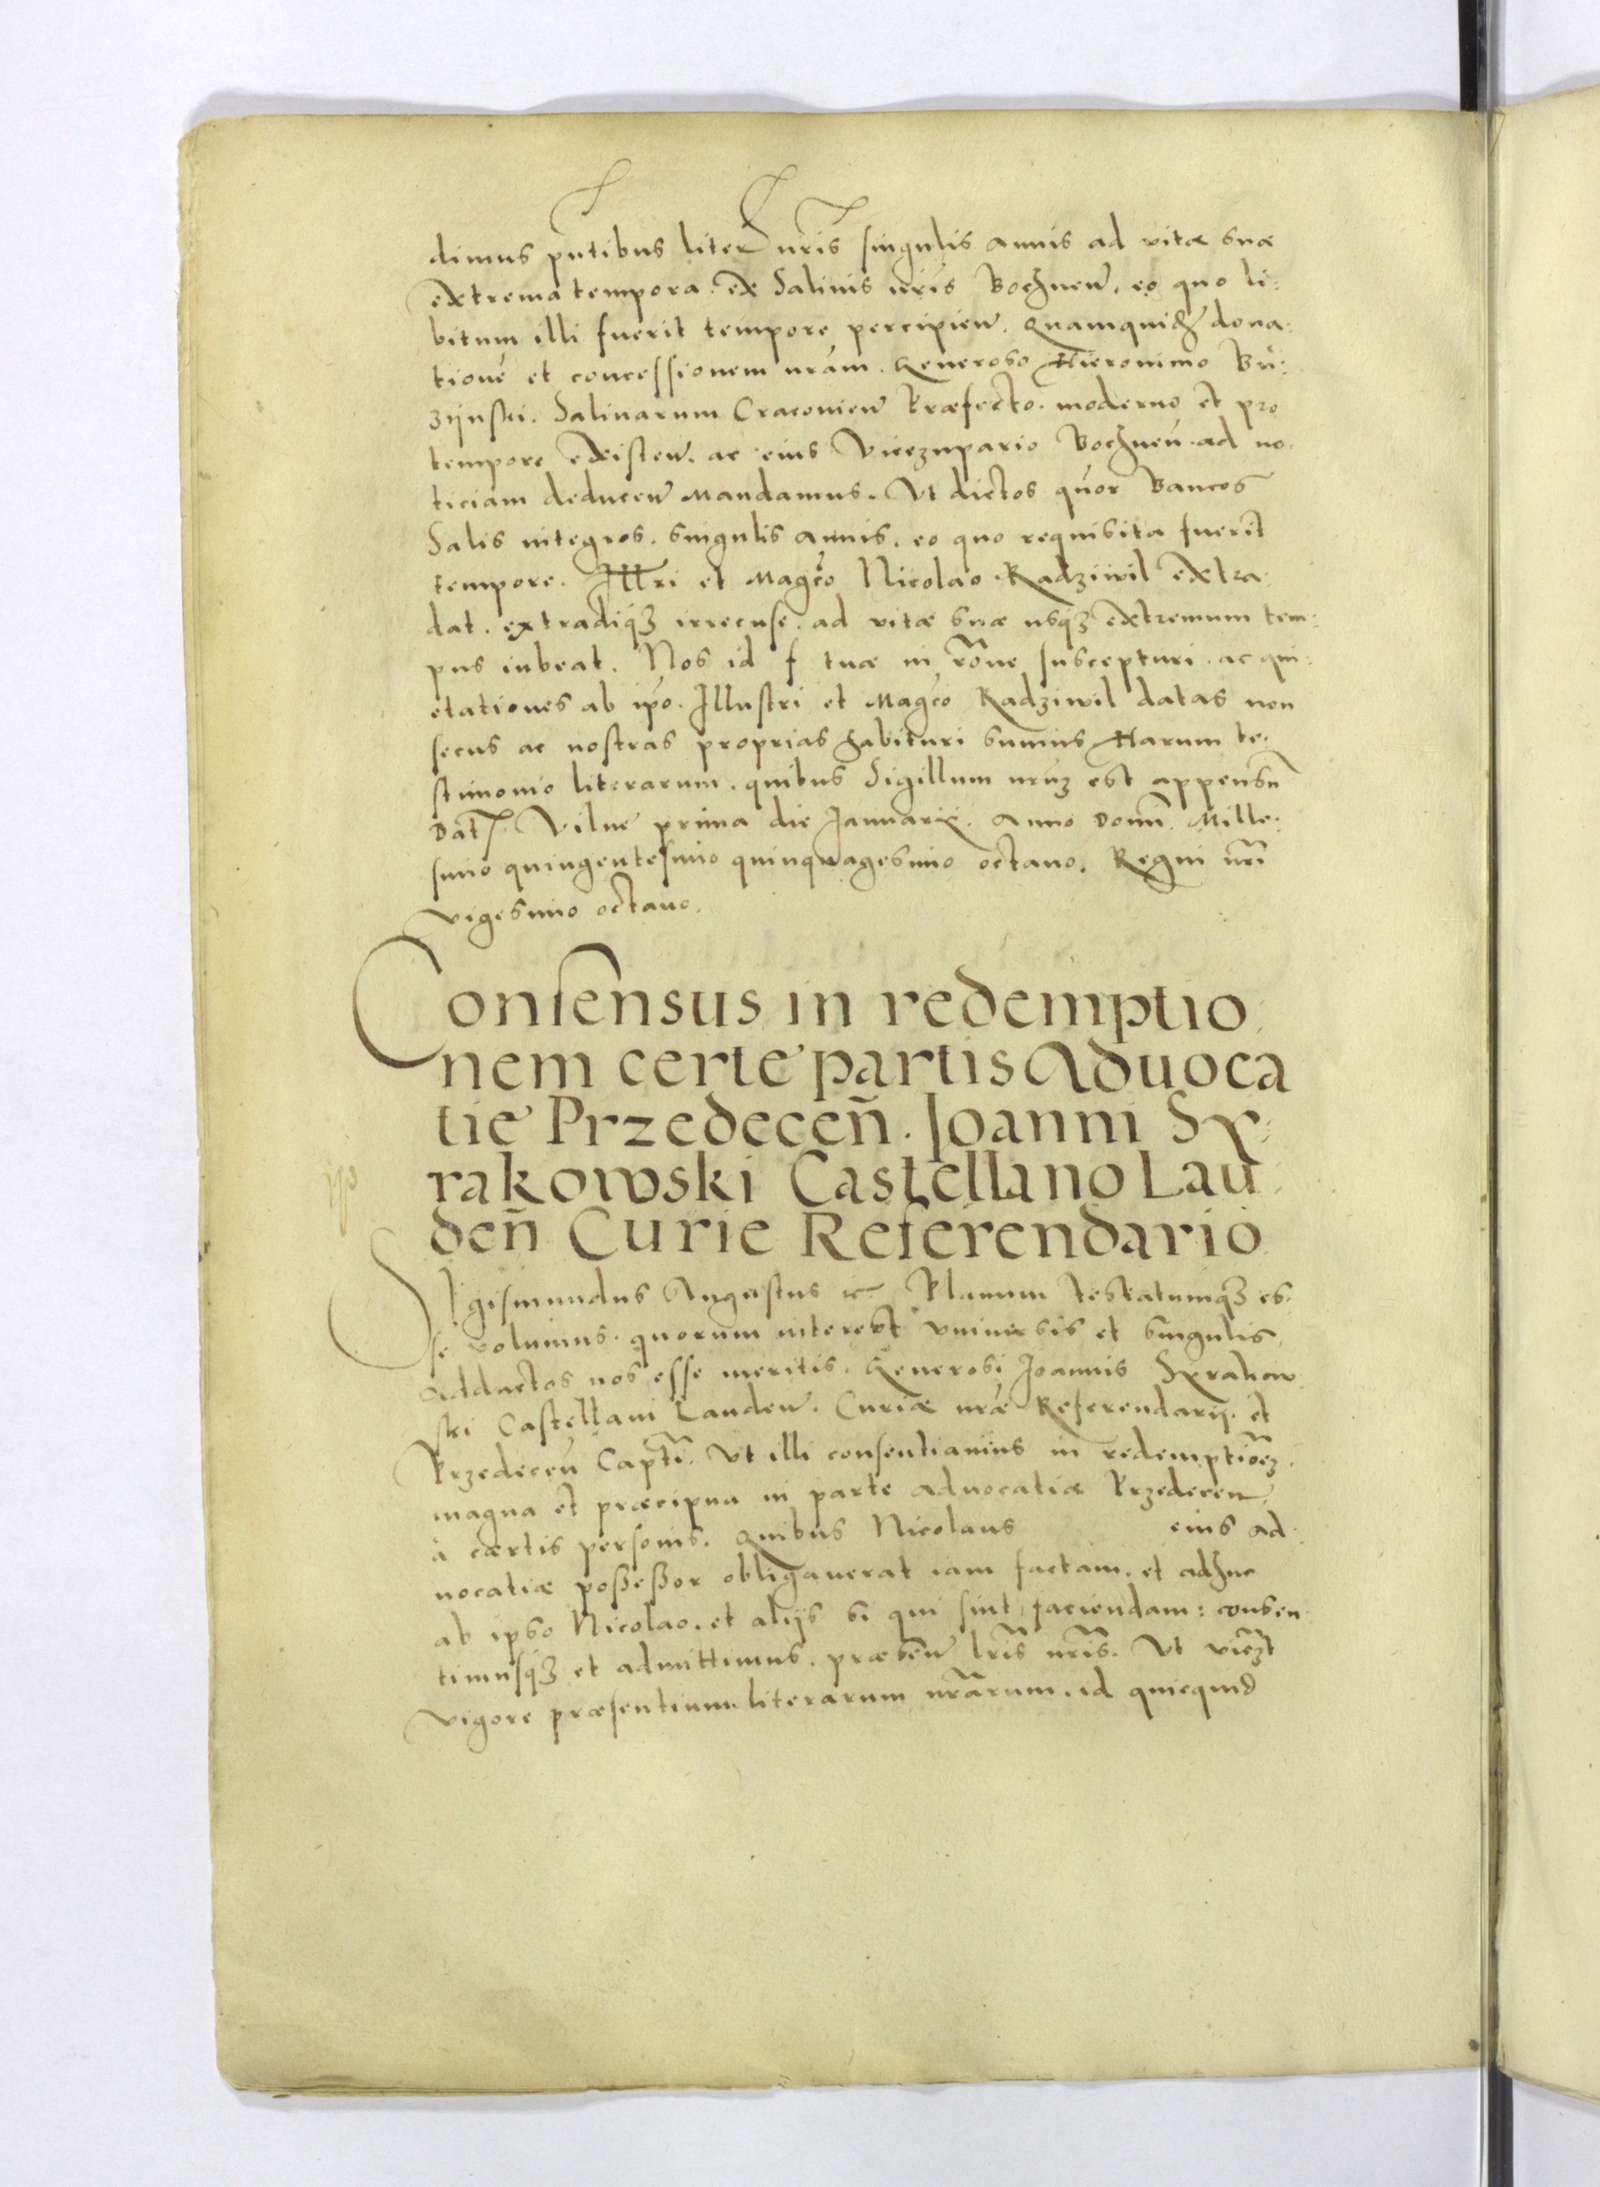 dimus pntibus liter nris singulis annis ad vitæ suæ
extrema tempora. ex Salinis nris Bochnen. eo quo li:
bitum illi fuerit tempore percipien. Quamquidem dona:
tione et concessionem nram. Generoso Hieronimo Bu:
zijnski. Salinarum Cracovien Præfecto. moderno et pro
tempore existen. ac eius Vicezupario Bochnen. ad no.
ticiam deducen Mandamus. Vt dictos quor Bancos
Salis integros. singulis annis. eo quo requisita fuerit
tempore. Illri et Magco Nicolao Radziwil extra.
dat. extradiqz irrecuse. ad vitæ suæ usqz extremum tem:
pus iubeat. Nos id f tuæ in rone suscepturi. ac qui:
etationes ab ipo. Illustri et Magco Radziwil datas non
secus ac nostras proprias habituri sumus Harum te.
stimonio literarum. quibus Sigillum nrum est appensu
Dat Vilne prima die Januarij. Anno Domi Mille.
simo quingentesimo quinquagesimo octavo. Regni nri
vigesimo octavo.
Consensus in redemptio
nem certe partis Aduoca
tie Przedeceñ. Joanni Sx
rakowski Castellano Lau
deñ Curie Referendario
Sigismundus Augustus etc Planum testatumqz es:
se volumus. quorum interest vniversis et singulis.
adductos nos esse meritis. Generosi Joannis Sxrakow
ski Castellani Lauden. Curiæ nræ Referendarij. et
Przedecen Capti. Vt illi consentiamus in redemptioez
magna et præcipua in parte advocatiæ Przedecen
à cærtis personis. quibus Nicolaus eius ad
vocatiæ possessor obligaverat iam factam. et adhuc
ab ipso Nicolao. et alijs si qui sint faciendam: consen
timusqz et admittimus. præsen lris nris. Vt
vigore præsentium literarum nrarum. id quicquid